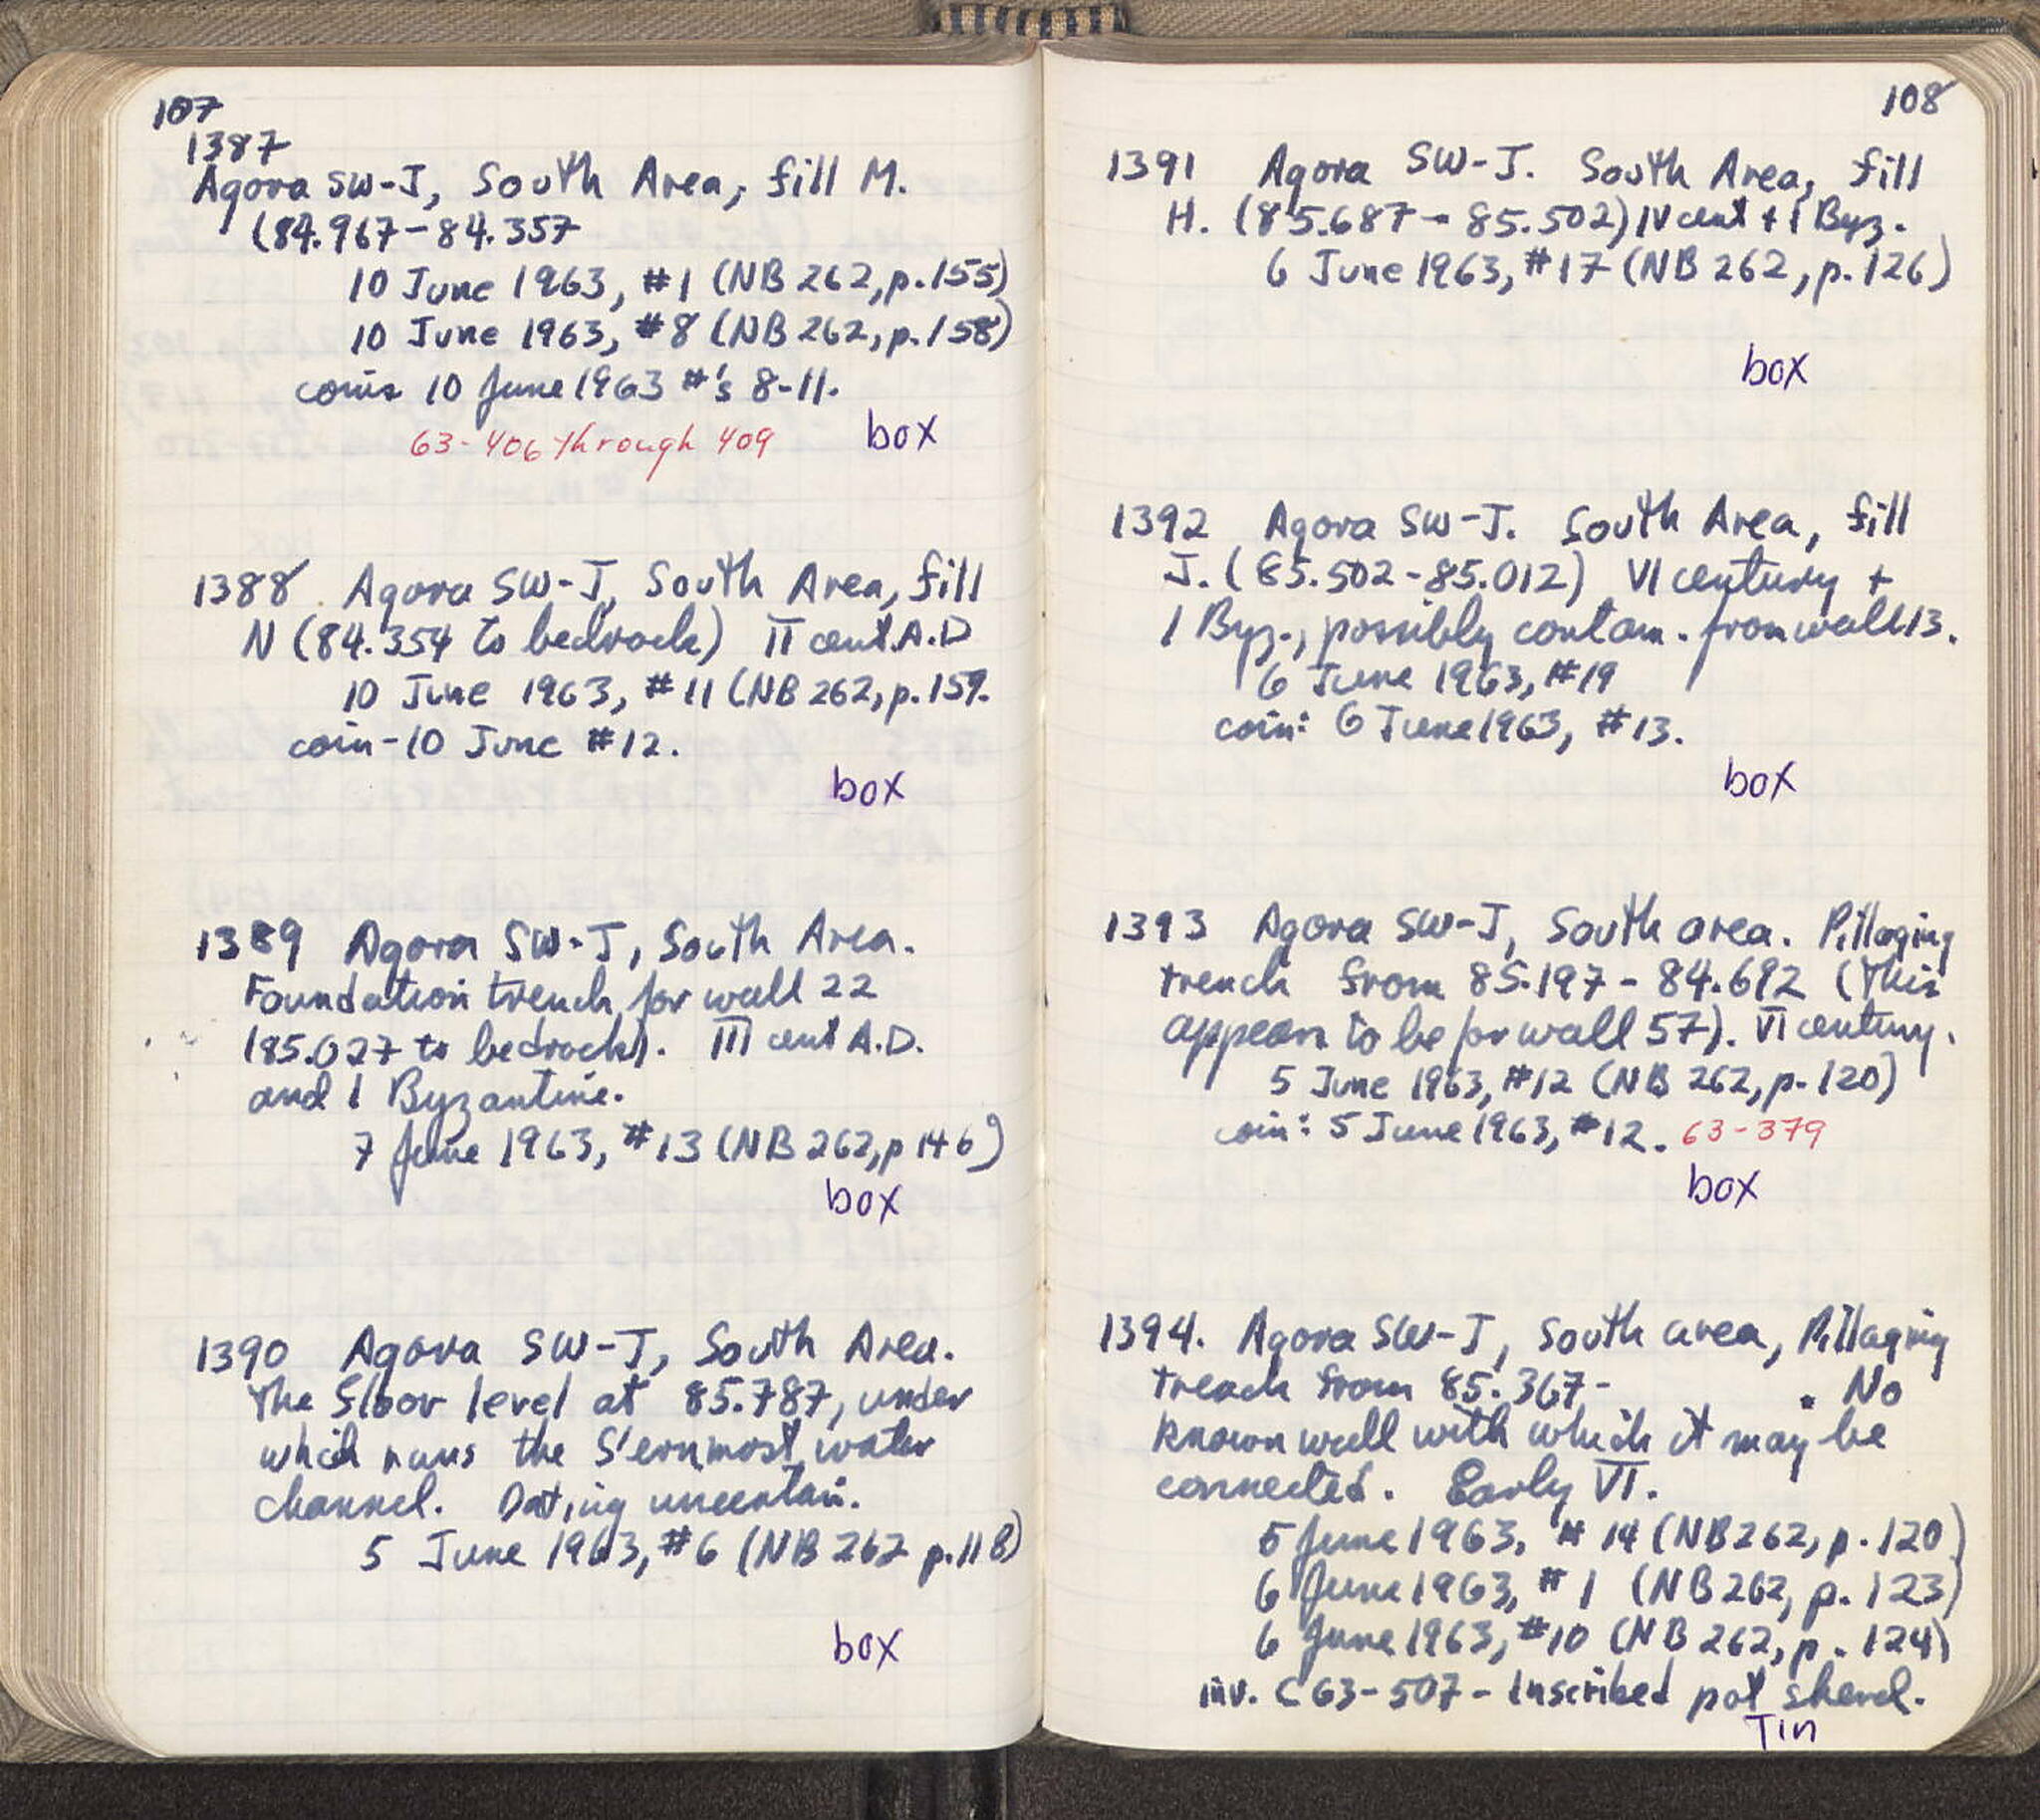 107
1387
Agora SW-J, South Area, fill M.
(84.967-84.357
10 June 1963, #1 (NB 262, p.155)
10 June 1963, #8 (NB 262, p.158)
coins 10 June 1963 #'s 8-11.
63-406 through 409 box
1388 Agora SW-J, South Area, fill
N (84.354 to bedrock) II cent A.D
10 June 1963, #11 (NB 262, p.159.
coin-10 June #12.
box
1389 Agora SW-J, South Area.
Foundation trench for wall 22
(85.027 to bedrock). III cent A.D.
and 1 Byzantine.
7 June 1963, #13 (NB 262, p 146)
box
1390 Agora SW-J, South Area.
The floor level at 85.787, under
which runs the S'ernmost water
channel. Dating uncertain.
5 June 1963, #6 (NB 262 p.118)
box
108
1391 Agora SW-J. South Area, fill
H. (85.687-85.502) IV cent + 1 Byz.
6 June 1963, #17 (NB 262, p.126)
box
1392 Agora SW-J. South Area, fill
J. (85.502-85.012) VI century +
1 Byz., possibly contam. from wall 13.
6 June 1963, #19
coin: 6 June 1963, #13.
box
1393 Agora SW-J, South area. Pillaging
trench from 85.197-84.692 (This
appears to be for wall 57). VI century.
5 June 1963, #12 (NB 262, p.120)
coin: 5 June 1963, #12. 63-379
box
1394. Agora SW-J, South area, Pillaging
trench from 85.367- . No
known wall with which it may be
connected. Early VI.
5 June 1963, #14 (NB 262, p.120)
6 June 1963, #1 (NB 262, p.123)
6 June 1963, #10 (NB 262, p.124)
inv. C 63-507 - Inscribed pot sherd.
Tin